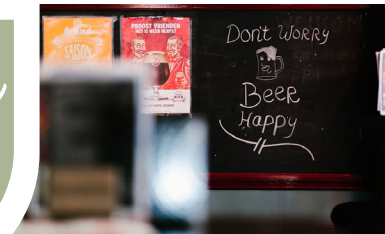 SAISON
PROOST VRIENDEN
HET IS WEER HERFST
Don't Worry
Beer
Happy